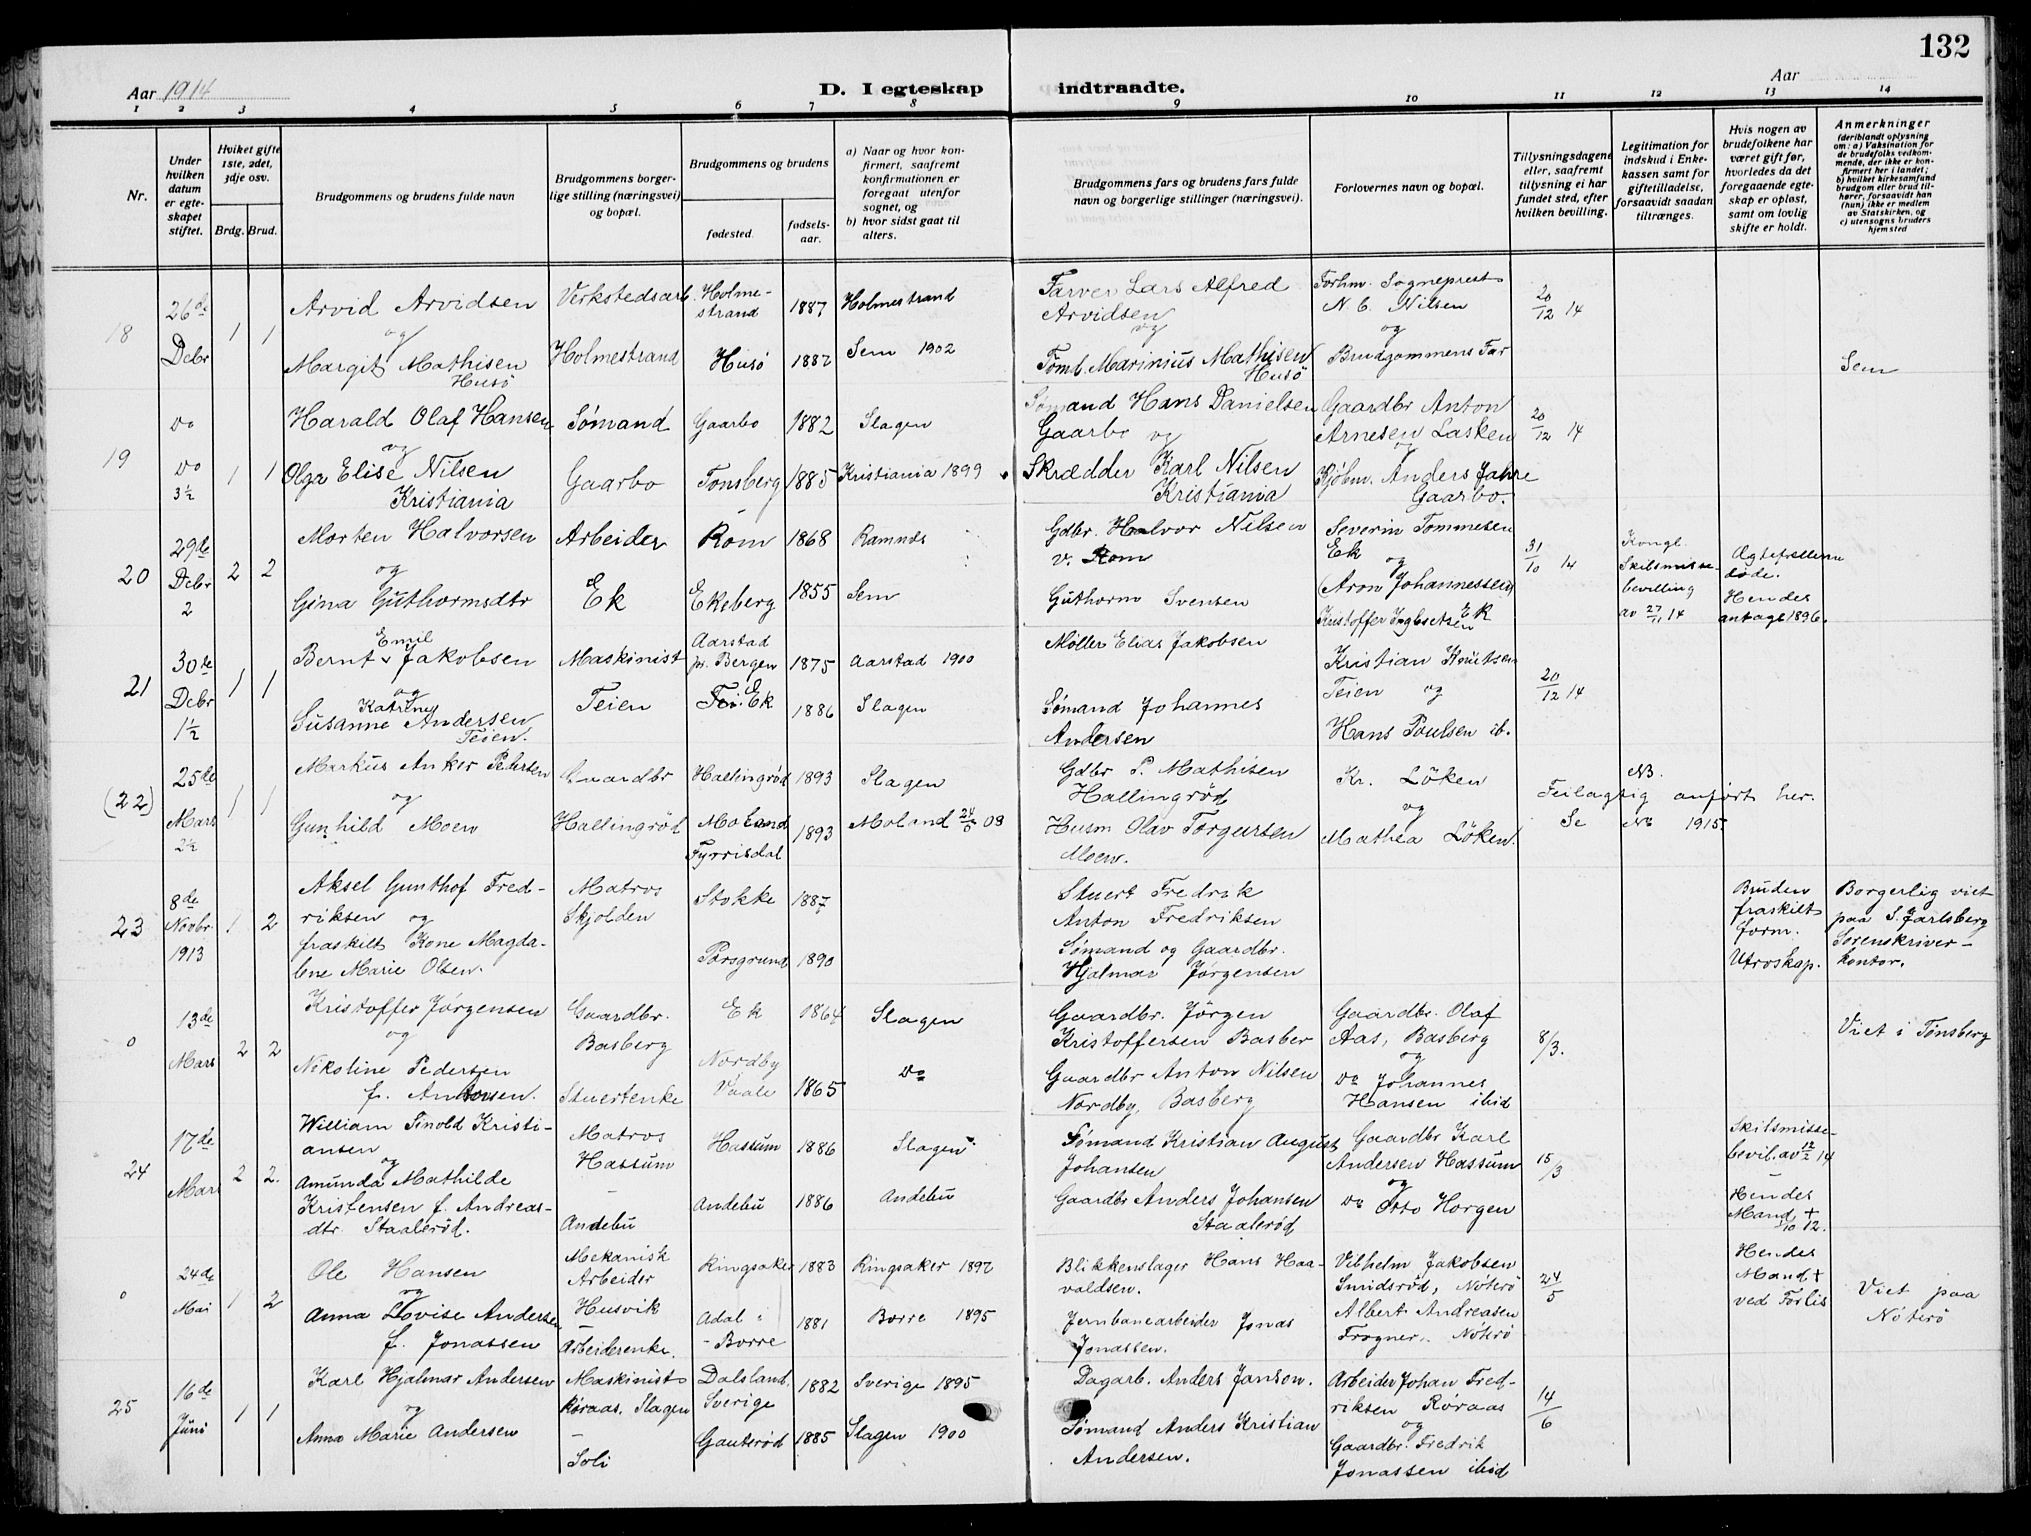 132
Aar 1914
D. I egteskap
indtraadte.
Aar
1 2 3 4 5 6 7 8 9 10 11 12 13 14
Nr.
Under hvilken datum er egteskapet stiftet.
Hviket gifte 1ste, 2det, 3dje osv.
Brdg. Brud.
Brudgommens og brudens fulde navn
Brudgommens borgerlige stilling (næringsvei) og bopæl.
Brudgommens og brudens
fødested.
fødselsaar.
a) Naar og hvor konfirmert, saafremt konfirmationen er foregaat utenfor sognet, og
b) hvor sidst gaat til alters.
Brudgommens fars og brudens fars fulde navn og borgerlige stillinger (næringsvei).
Forlovernes navn og bopæl.
Tillysningsdagene eller, saafremt tillysning ei har fundet sted, efter hvilken bevilling.
Legitimation for indskud i Enkekassen samt for giftetilladelse, forsaavidt saadan tiltrænges.
Hvis nogen av brudefolkene har været gift før, hvorledes da det foregaaende egteskap er opløst, samt om lovlig skifte er holdt.
Anmerkninger
(deriblandt oplysning om: a) Vaksination for de brudefolks vedkommende, der ikke er konfirmert her i landet; b) hvilket kirkesamfund brudgom eller brud tilhører, forsaavidt han (hun) ikke er medlem av Statskirken, og c) utensogns bruders hjemsted
18
26de
Debr
1 1
Arvid Arvidsen
og
Margit Mathisen
Husö
Verkstedsarb.
Holmestrand
Holmestrand
Husö
1887
1882
Holmestrand
Sem 1902
Farver Lars Alfred
Arvidsen
og
Tömb. Marinius Mathisen
Husö
Forhv. Sogneprest
N. C. Nilsen
og
Brudgommens Far
20/12 14
Sem
19
do
do
3½
1 1
Harald Olaf Hansen
og
Olga Elise Nilsen
Kristiania
Sømand
Gaarbo
Gaarbo
Tønsberg
1882
1885
Slagen
Kristiania 1899
Sømand Hans Danielsen
Gaarbo og
Skrædder Karl Nilsen
Kristiania
Gaardbr Anton
Arnesen Lasken
og
Kjøbm. Anders Jahre
Gaarbo.
20/12 14
20
29de
Debr
2
2 2
Morten Halvorsen
og
Gina Guthormsdtr
Arbeider
Ek
Rom
Ekeberg
1868
1855
Ramnes
Sem
Gdbr. Halvor Nilsen
v. Rom
Guthorm Svensen
Severin Tommesen
Ek
og
(Aron Johannessen)
Kristoffer Inglsetsen Ek
31/10 14
Kongl.
Skilsmissebevilling
av 27/11 14
Ægtefællerne
døde.
Hendes
antagl 1896.
21
30te
Debr
1½
1 1
Bernt Emil Jakobsen
og
Susanne Katrine Andersen
Teien.
Maskinist
Teien
Aarstad
pr. Bergen
Ek
1875
1886
Aarstad 1900
Slagen
Møller Elias Jakobsen
Sømand Johannes
Andersen
Kristian Knutsen
Teien og
Hans Poulsen ib.
20/12 14
(22)
25de
Mars
2½
1 1
Markus Anker Pedersen
og
Gunhild Moen
Gaardbr
Hallingrød
Hallingrød
Moland
Fyrrisdal
1893
1893
Slagen
Moland 24/5 08
Gdbr P. Mathisen
Hallingrød
Husm Olav Torgursen
Moen.
Kr. Löken
og
Mathea Löken.
NB.
Feilagtig anført her.
Se No 1915.
23
8de
Novbr
1913
1 2
Aksel Gunthof Fredriksen
og
fraskilt Kone Magdalene Marie Olsen.
Matros
Skjolden
Stokke
Porsgrund
1887
1890
Stuert Fredrik
Anton Fredriksen
Sømand og Gaardbr.
Hjalmar Jørgensen
Bruden
fraskilt
form.
Utroskap.
Borgerlig viet
paa S. Jarlsberg
Sorenskriverkontor.
0
13de
Mars
2 2
Kristoffer Jørgensen
og
Nikoline Pedersen
f. Antonsen.
Gaardbr.
Basberg
Stuertenke
Ek
Nordby
Vaale
1864
1865
Slagen
do
Gaardbr. Jörgen
Kristoffersen Basber
Gaardbr Anton Nilsen
Nordby, Basberg
Gaardbr. Olaf
Aas, Basberg
og
do Johannes
Hansen ibid
8/3.
Viet i Tønsberg
24
17de
Mars
2 2.
William Tinold Kristiansen
og
Amunda Mathilde
Kristensen f. Andreasdtr Staalerød.
Matros
Hassum
–
Andebu
Hassum
Andebu
1886
1886
Slagen
Andebu
Sømand Kristian August
Johansen
Gaardbr Anders Johansen
Staalerød
Gaardbr Karl
Andersen Hassum
og
do Otto Horgen
15/3
Skilsmissebevil. av 12/2 14
Hendes
Mand +
/10 12.
0
24de
Mai
1 2
Ole Hansen
og
Anna Lovise Andersen
f. Jonassen
Mekanisk
Arbeider
Husvik
–
Arbeiderenke.
Ringsaker
Adal i
Borre
1883
1881
Ringsaker 1897
Borre 1895
Blikkenslager Hans Haavaldsen.
Jernbanearbeider Jonas
Jonassen.
Vilhelm Jakobsen
Smidsrød, Nøterø
Albert Andreasen
Frogner, Nøterø
24/5
Hendes
Mand +
ved Forlis
Viet paa
Nøterø
25
16de
Juni
1 1
Karl Hjalmar Andersen
og
Anna Marie Andersen
Maskinist
Røraas, Slagen
–
Soli
Dalsland,
Sverige
Gauterød
1882
1885
Sverige 1895
Slagen 1900
Dagarb. Anders Janson.
Sømand Anders Kristian
Andersen.
Arbeider Johan Fredriksen Røraas
og
Gaardbr. Fredrik
Jonassen ibid
14/6